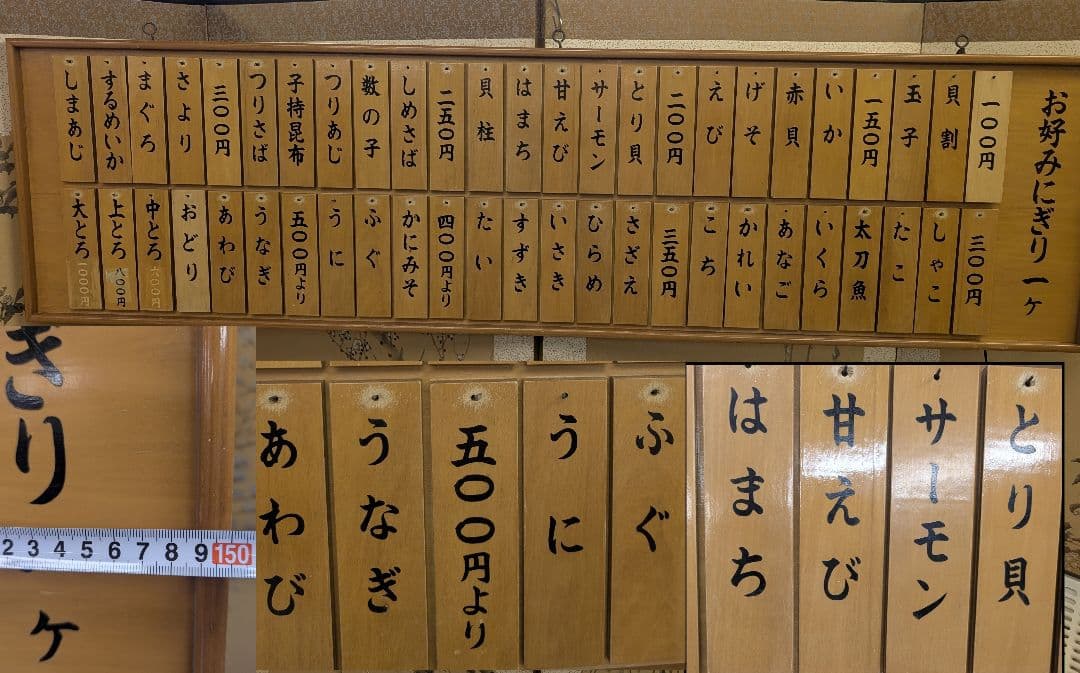 お好みにぎり 一ヶ
一〇〇円
貝割
玉子
一五〇円
いか
赤貝
げそ
えび
二〇〇円
とり貝
サーモン
甘えび
はまち
貝柱
二五〇円
しめさば
数の子
つりあじ
子持昆布
つりさば
三〇〇円
さより
まぐろ
するめいか
しまあじ
三〇〇円
しゃこ
たこ
太刀魚
いくら
あなご
かれい
こち
三五〇円
さざえ
ひらめ
いさき
すずき
たい
四〇〇円より
かにみそ
ふぐ
うに
五〇〇円より
うなぎ
あわび
おどり
中とろ 六〇〇円
上とろ 八〇〇円
大とろ 一〇〇〇円
ぎり
ヶ
2 3 4 5 6 7 8 9 150
ふぐ
うに
五〇〇円より
うなぎ
あわび
とり貝
サーモン
甘えび
はまち